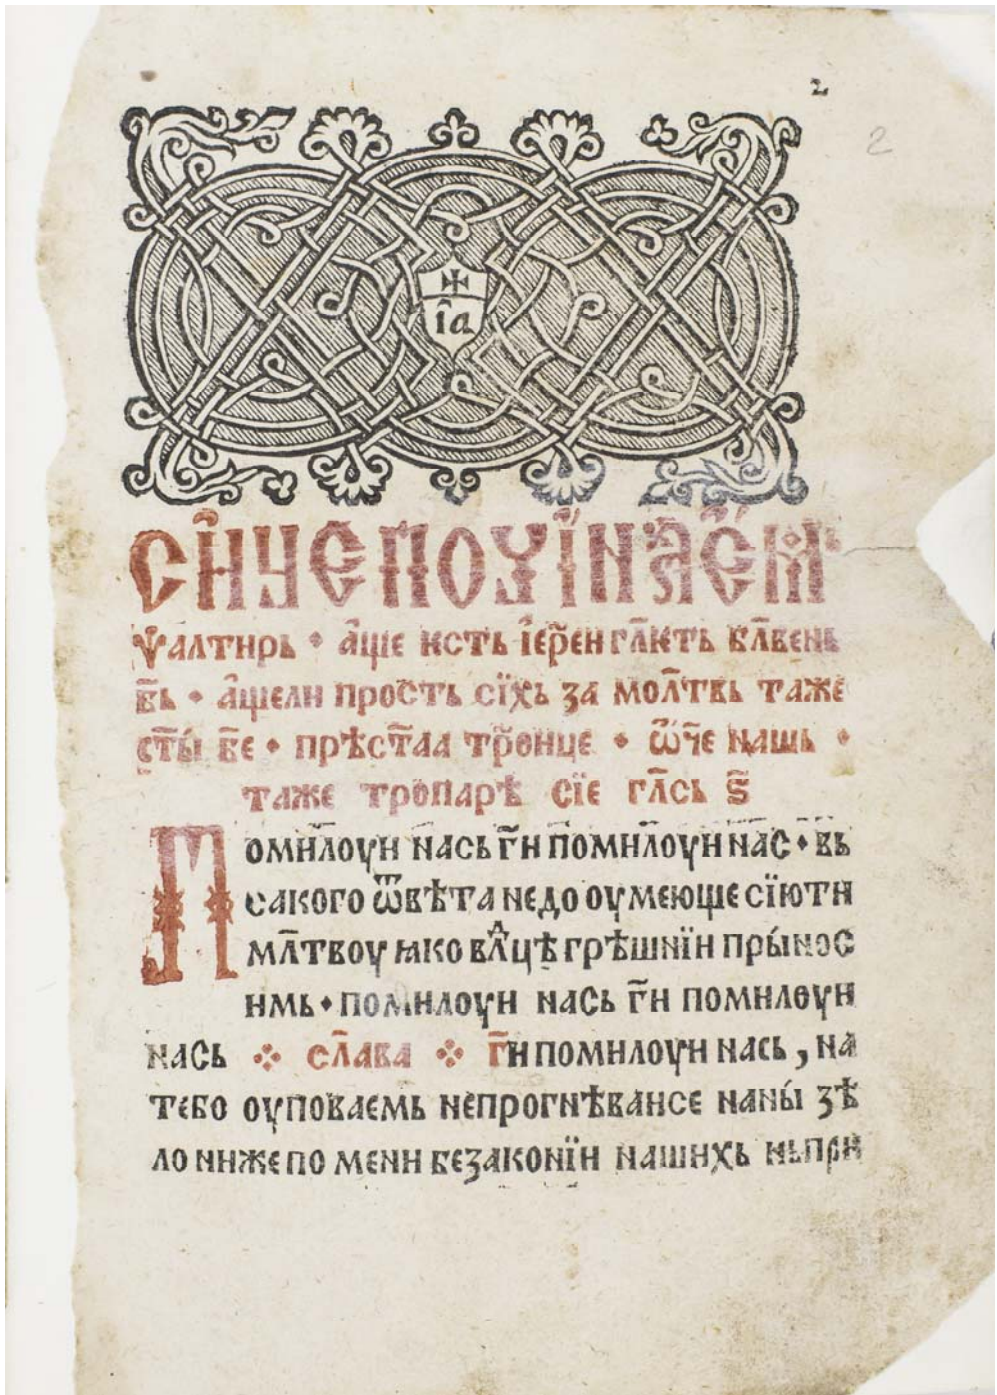 2
2
і҆а
Си́це поѱинае́м
Ѱалтирь · а҆ще ѥсть і҆ере҃н гл҃ѥть бл҃вень
б҃ь · а҆щели прость сїхь за мол҃твь таже
ст҃ы́ б҃е · прѣст҃аа тро҃ице · ѡ҆ч҃е нашь ·
таже тропарѣ сїе гл҃сь ѕ҃
Помилоуи нась г҃и помилоуи нас · вь
сакого ѿвѣта недо оумеюще сїюти
мл҃твоу ꙗко влⷣцѣ грѣшнїи пры́нос
имь · помилоуи нась г҃и помилоуи
нась сл҃ава г҃и помилоуи нась , на
тебо оуповаемь непрогнѣвансе наны́ зѣ
ло ниже по мени безаконїи нашихь ньпри